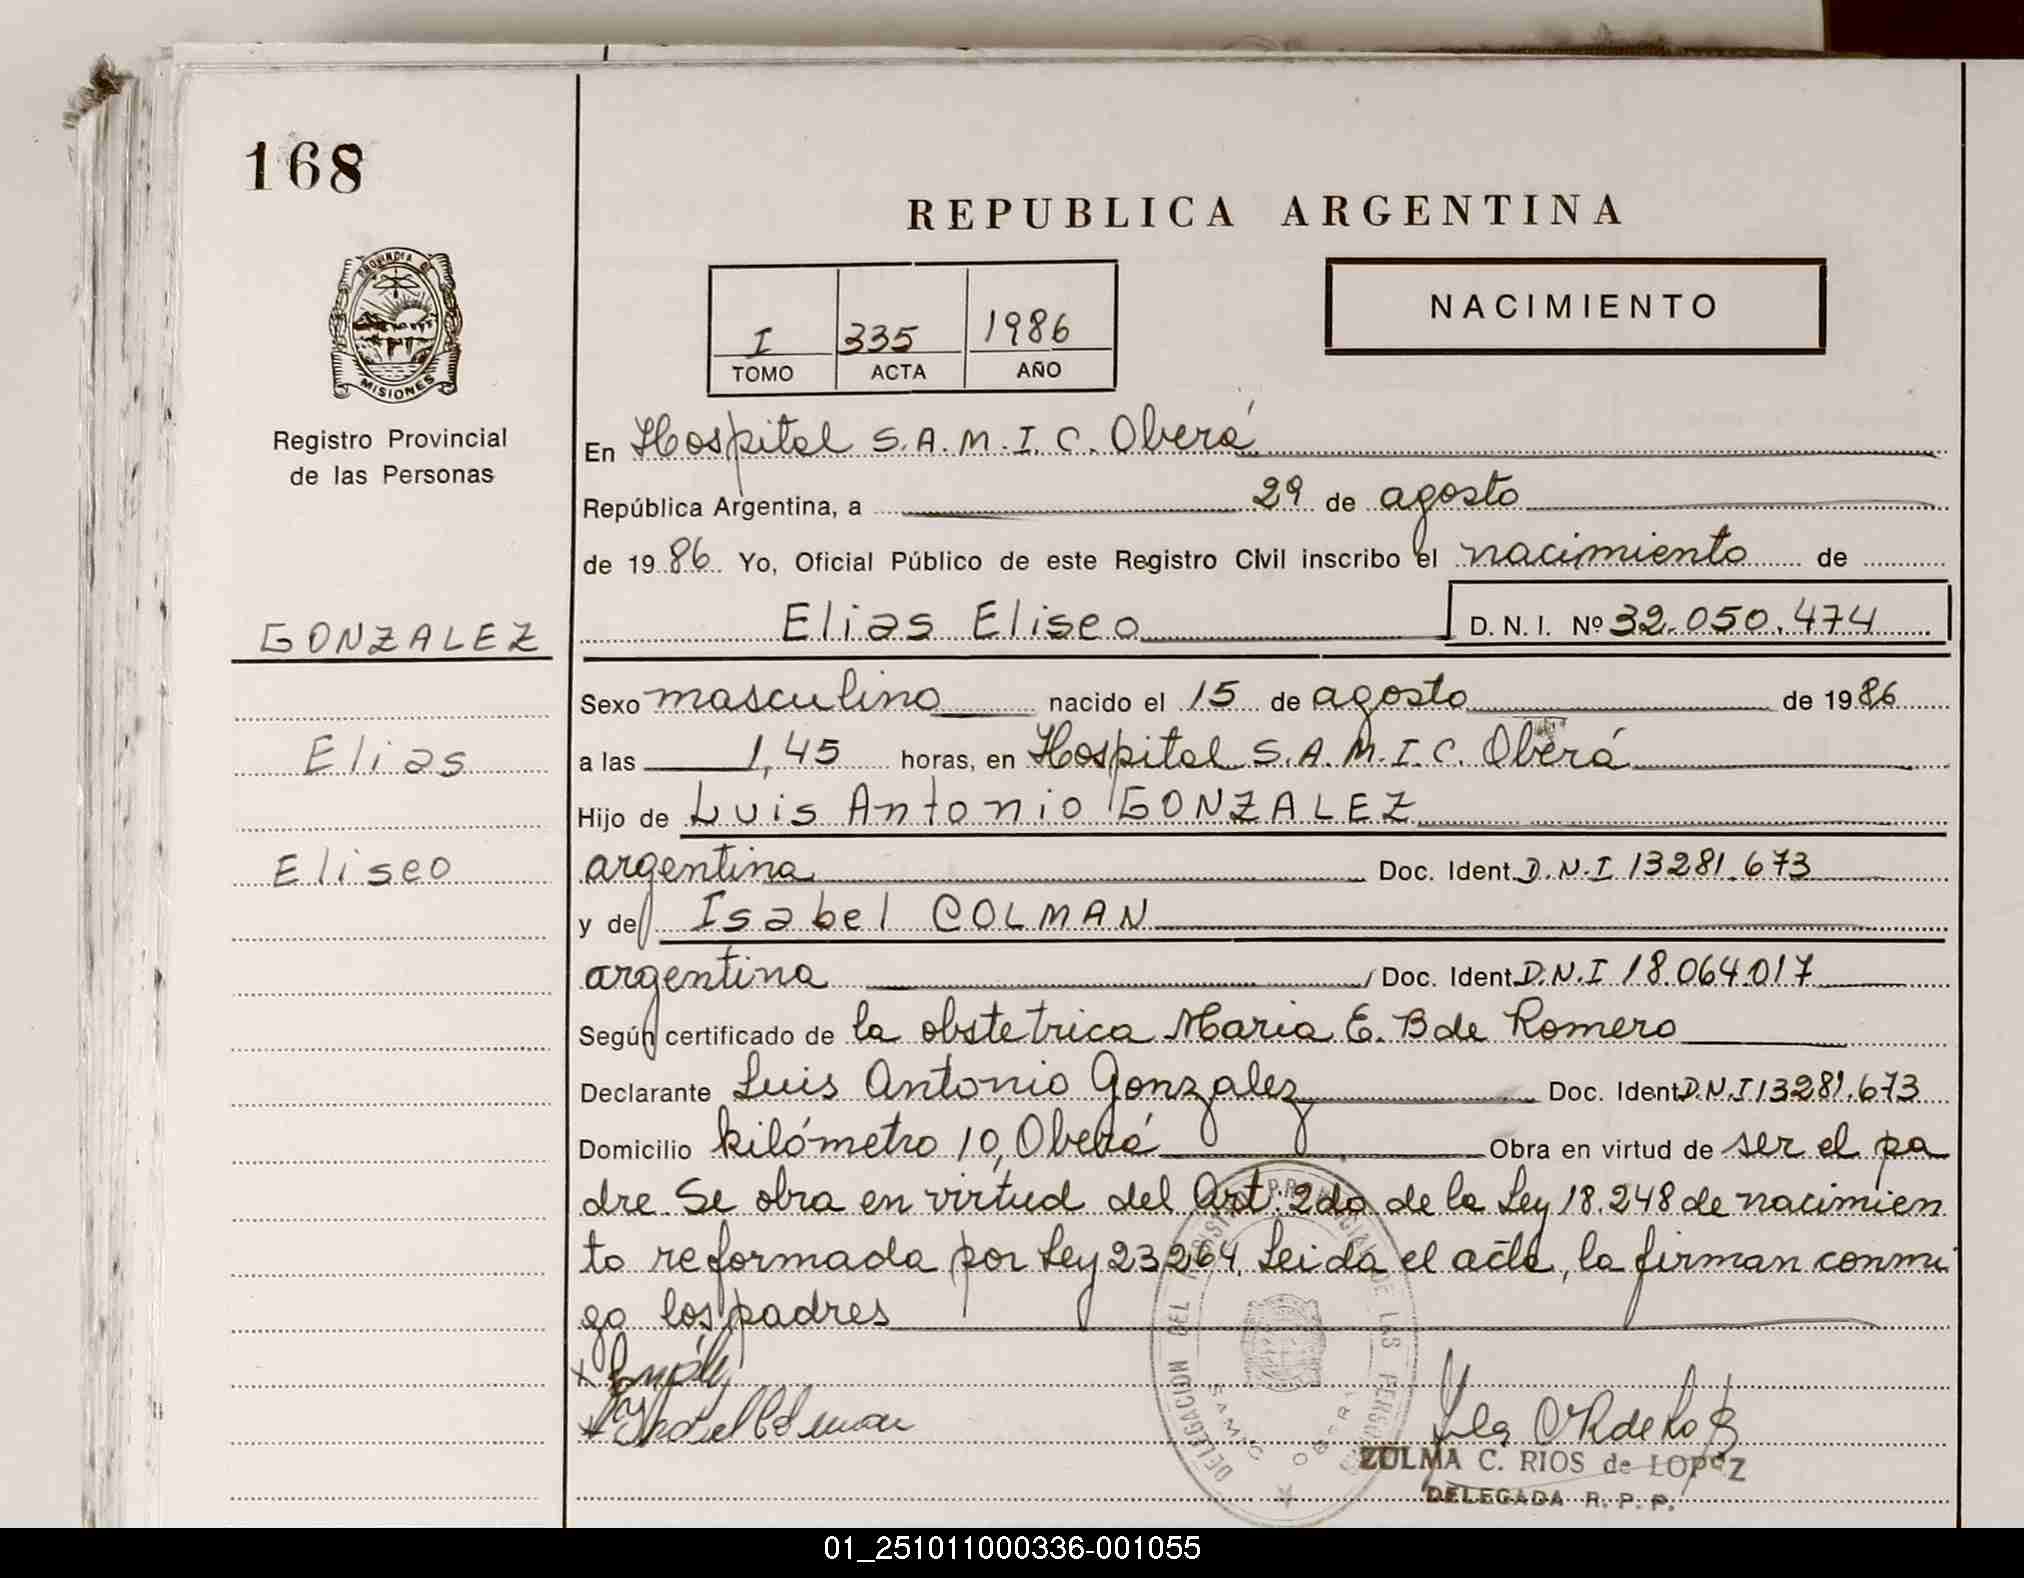 168
REPUBLICA ARGENTINA
PROVINCIA DE
MISIONES
NACIMIENTO
I 335 1986
TOMO ACTA AÑO
Registro Provincial
de las Personas
En Hospital S.A.M.I.C. Oberá
República Argentina, a 29 de agosto
de 1986 Yo, Oficial Público de este Registro Civil inscribo el nacimiento de
Elias Eliseo D.N.I. Nº 32.050.474
GONZALEZ
Elias
Eliseo
Sexo masculino nacido el 15 de agosto de 1986
a las 1,45 horas, en Hospital S.A.M.I.C. Oberá
Hijo de Luis Antonio GONZALEZ
argentina Doc. Ident. D.N.I 13281.673
y de Isabel COLMAN
argentina Doc. Ident. D.N.I 18.064.017
Según certificado de la obstetrica Maria E. B de Romero
Declarante Luis Antonio Gonzalez Doc. Ident. D.N.I 13281.673
Domicilio kilómetro 10, Oberá Obra en virtud de ser el pa
dre. Se obra en virtud del Art. 2do de la Ley 18.248 de nacimien
to reformada por Ley 23264. Leida el acta, la firman conmi
go los padres
Isabel Colman
DELEGACION DEL REGISTRO PROVINCIAL DE LAS PERSONAS
SAMIC OBERA
ZULMA C. RIOS de LOPEZ
DELEGADA R. P. P.
01_251011000336-001055